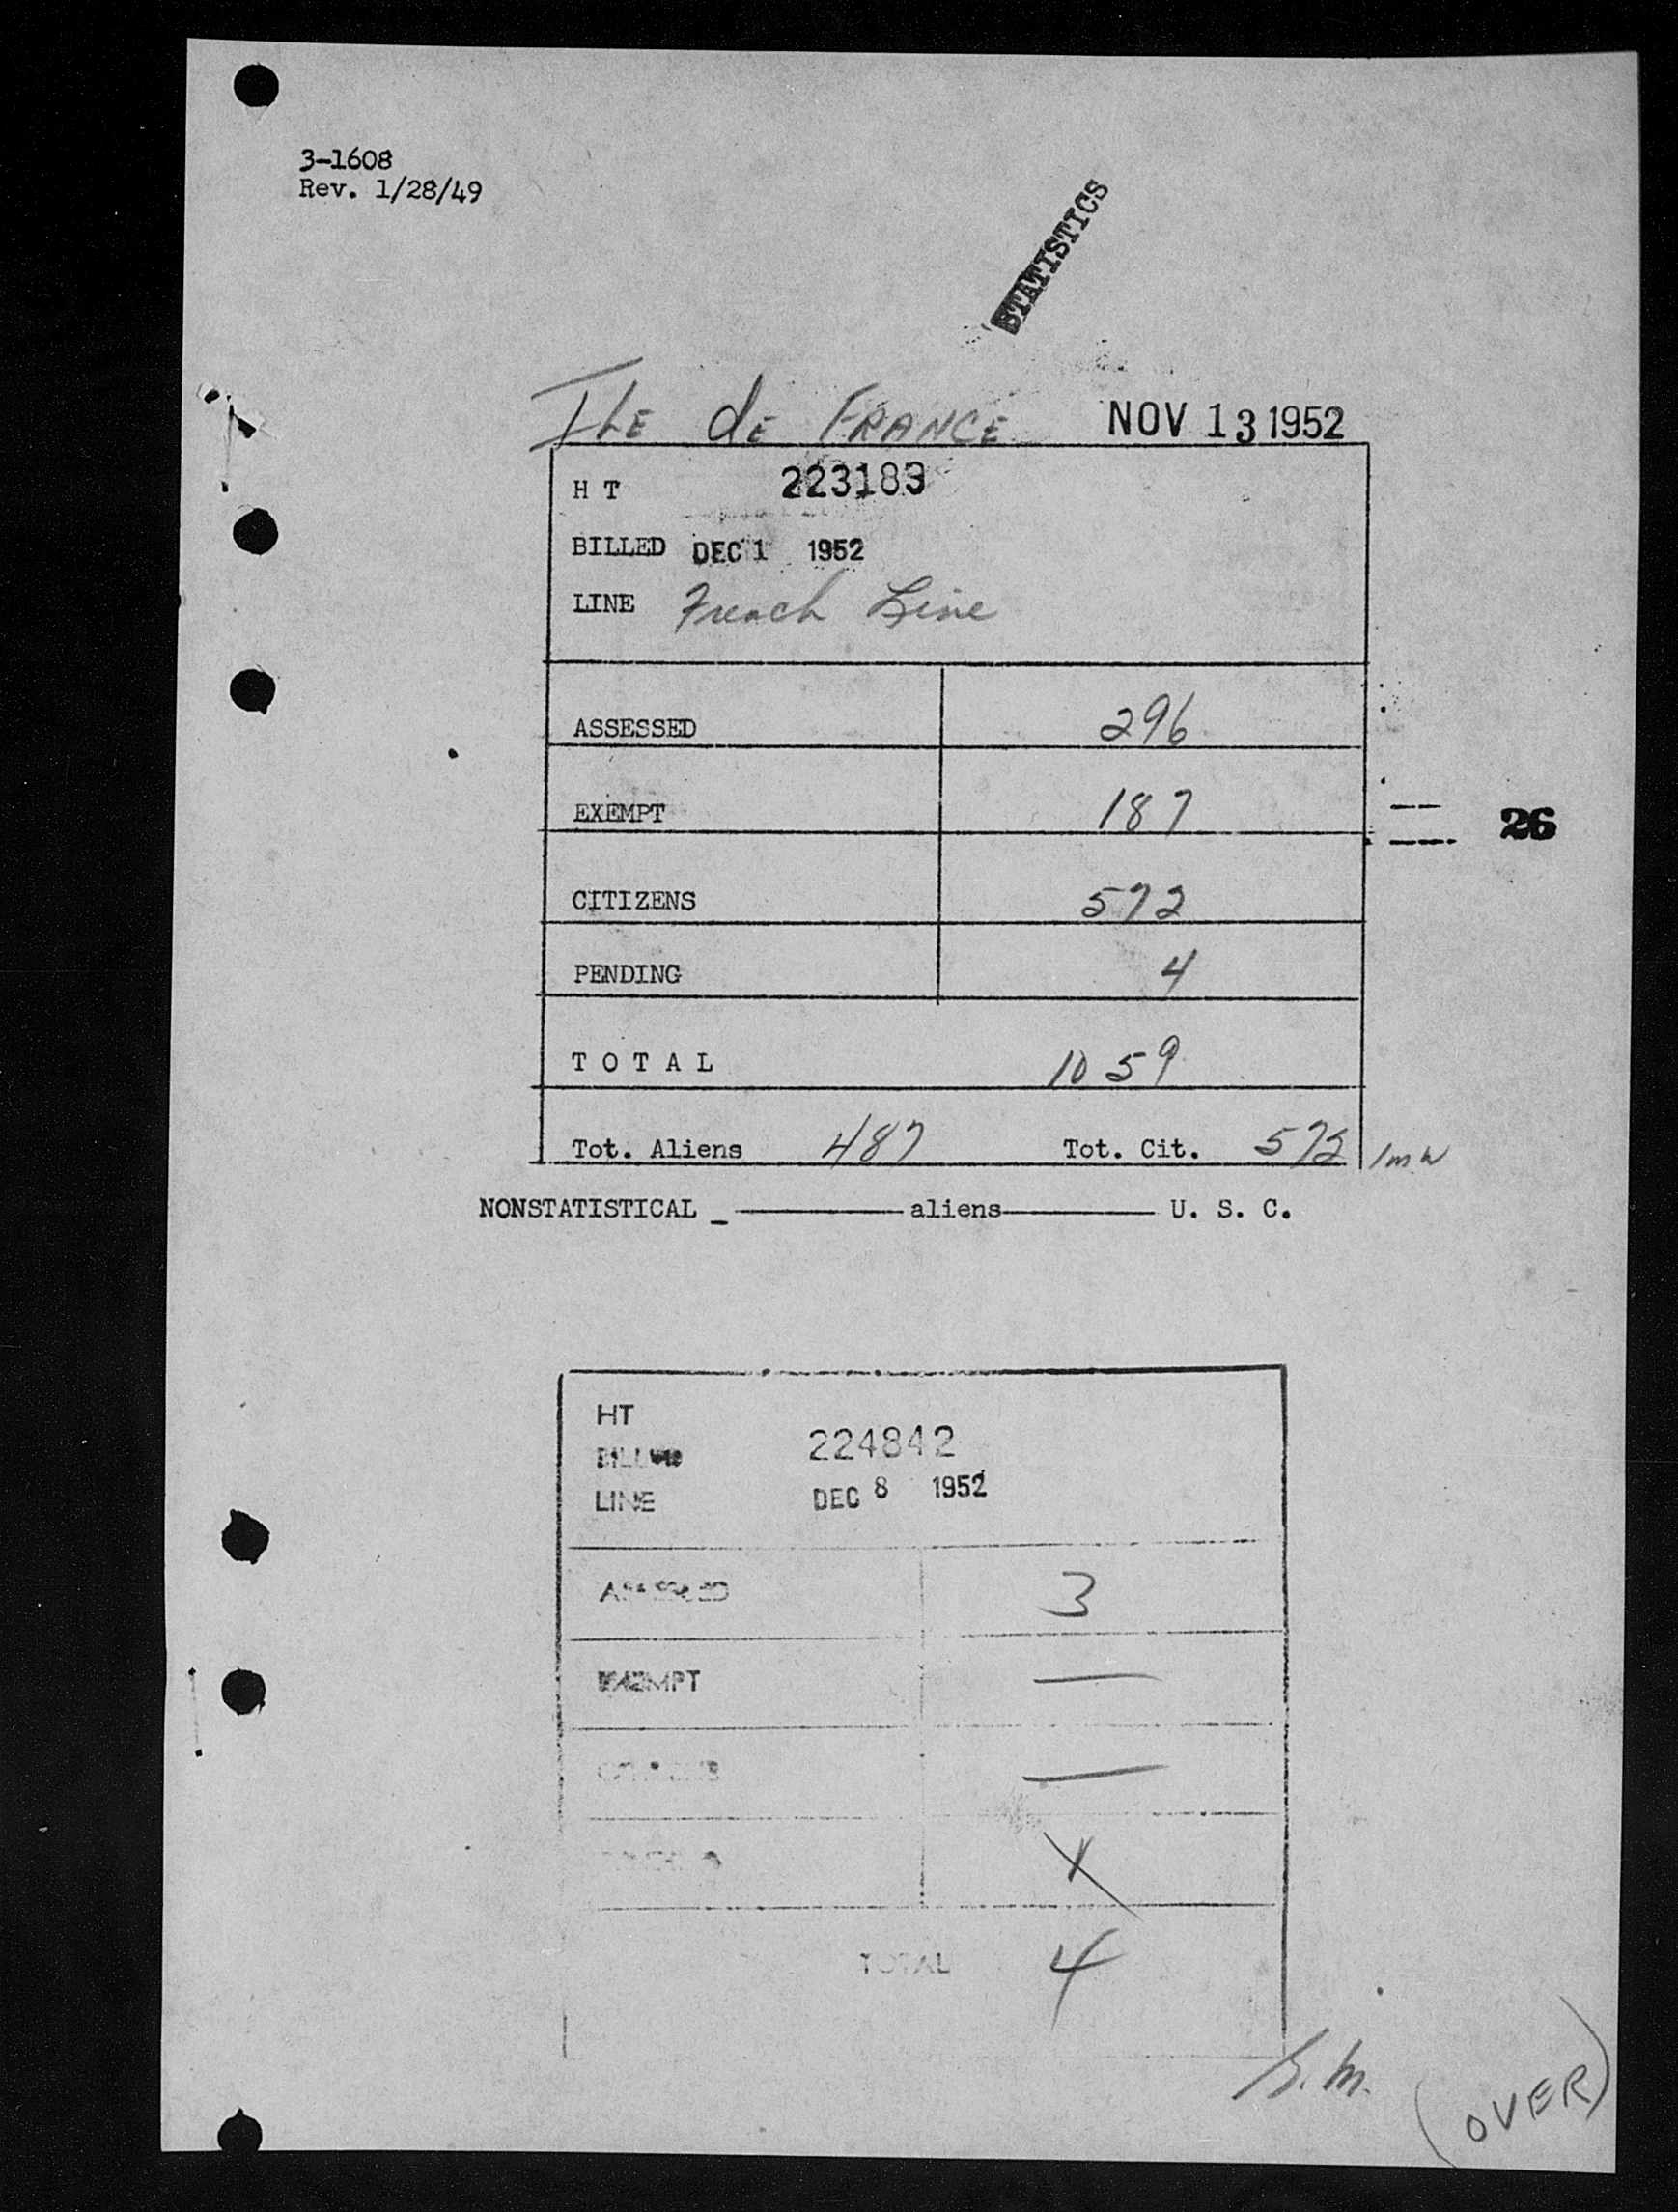 3-1608
Rev. 1/28/49
STATISTICS
ILE de FRANCE NOV 13 1952
H T 223183
BILLED DEC 1 1952
LINE French Line
ASSESSED 296
EXEMPT 187
26
CITIZENS 572
PENDING 4
T O T A L 1059
Tot. Aliens 487 Tot. Cit. 572 /mw
NONSTATISTICAL _ ———— aliens ———— U. S. C.
HT
224842
BILLED
LINE DEC 8 1952
ASSESSED 3
EXEMPT —
CITIZENS —
X
TOTAL 4
S.M.
(OVER)